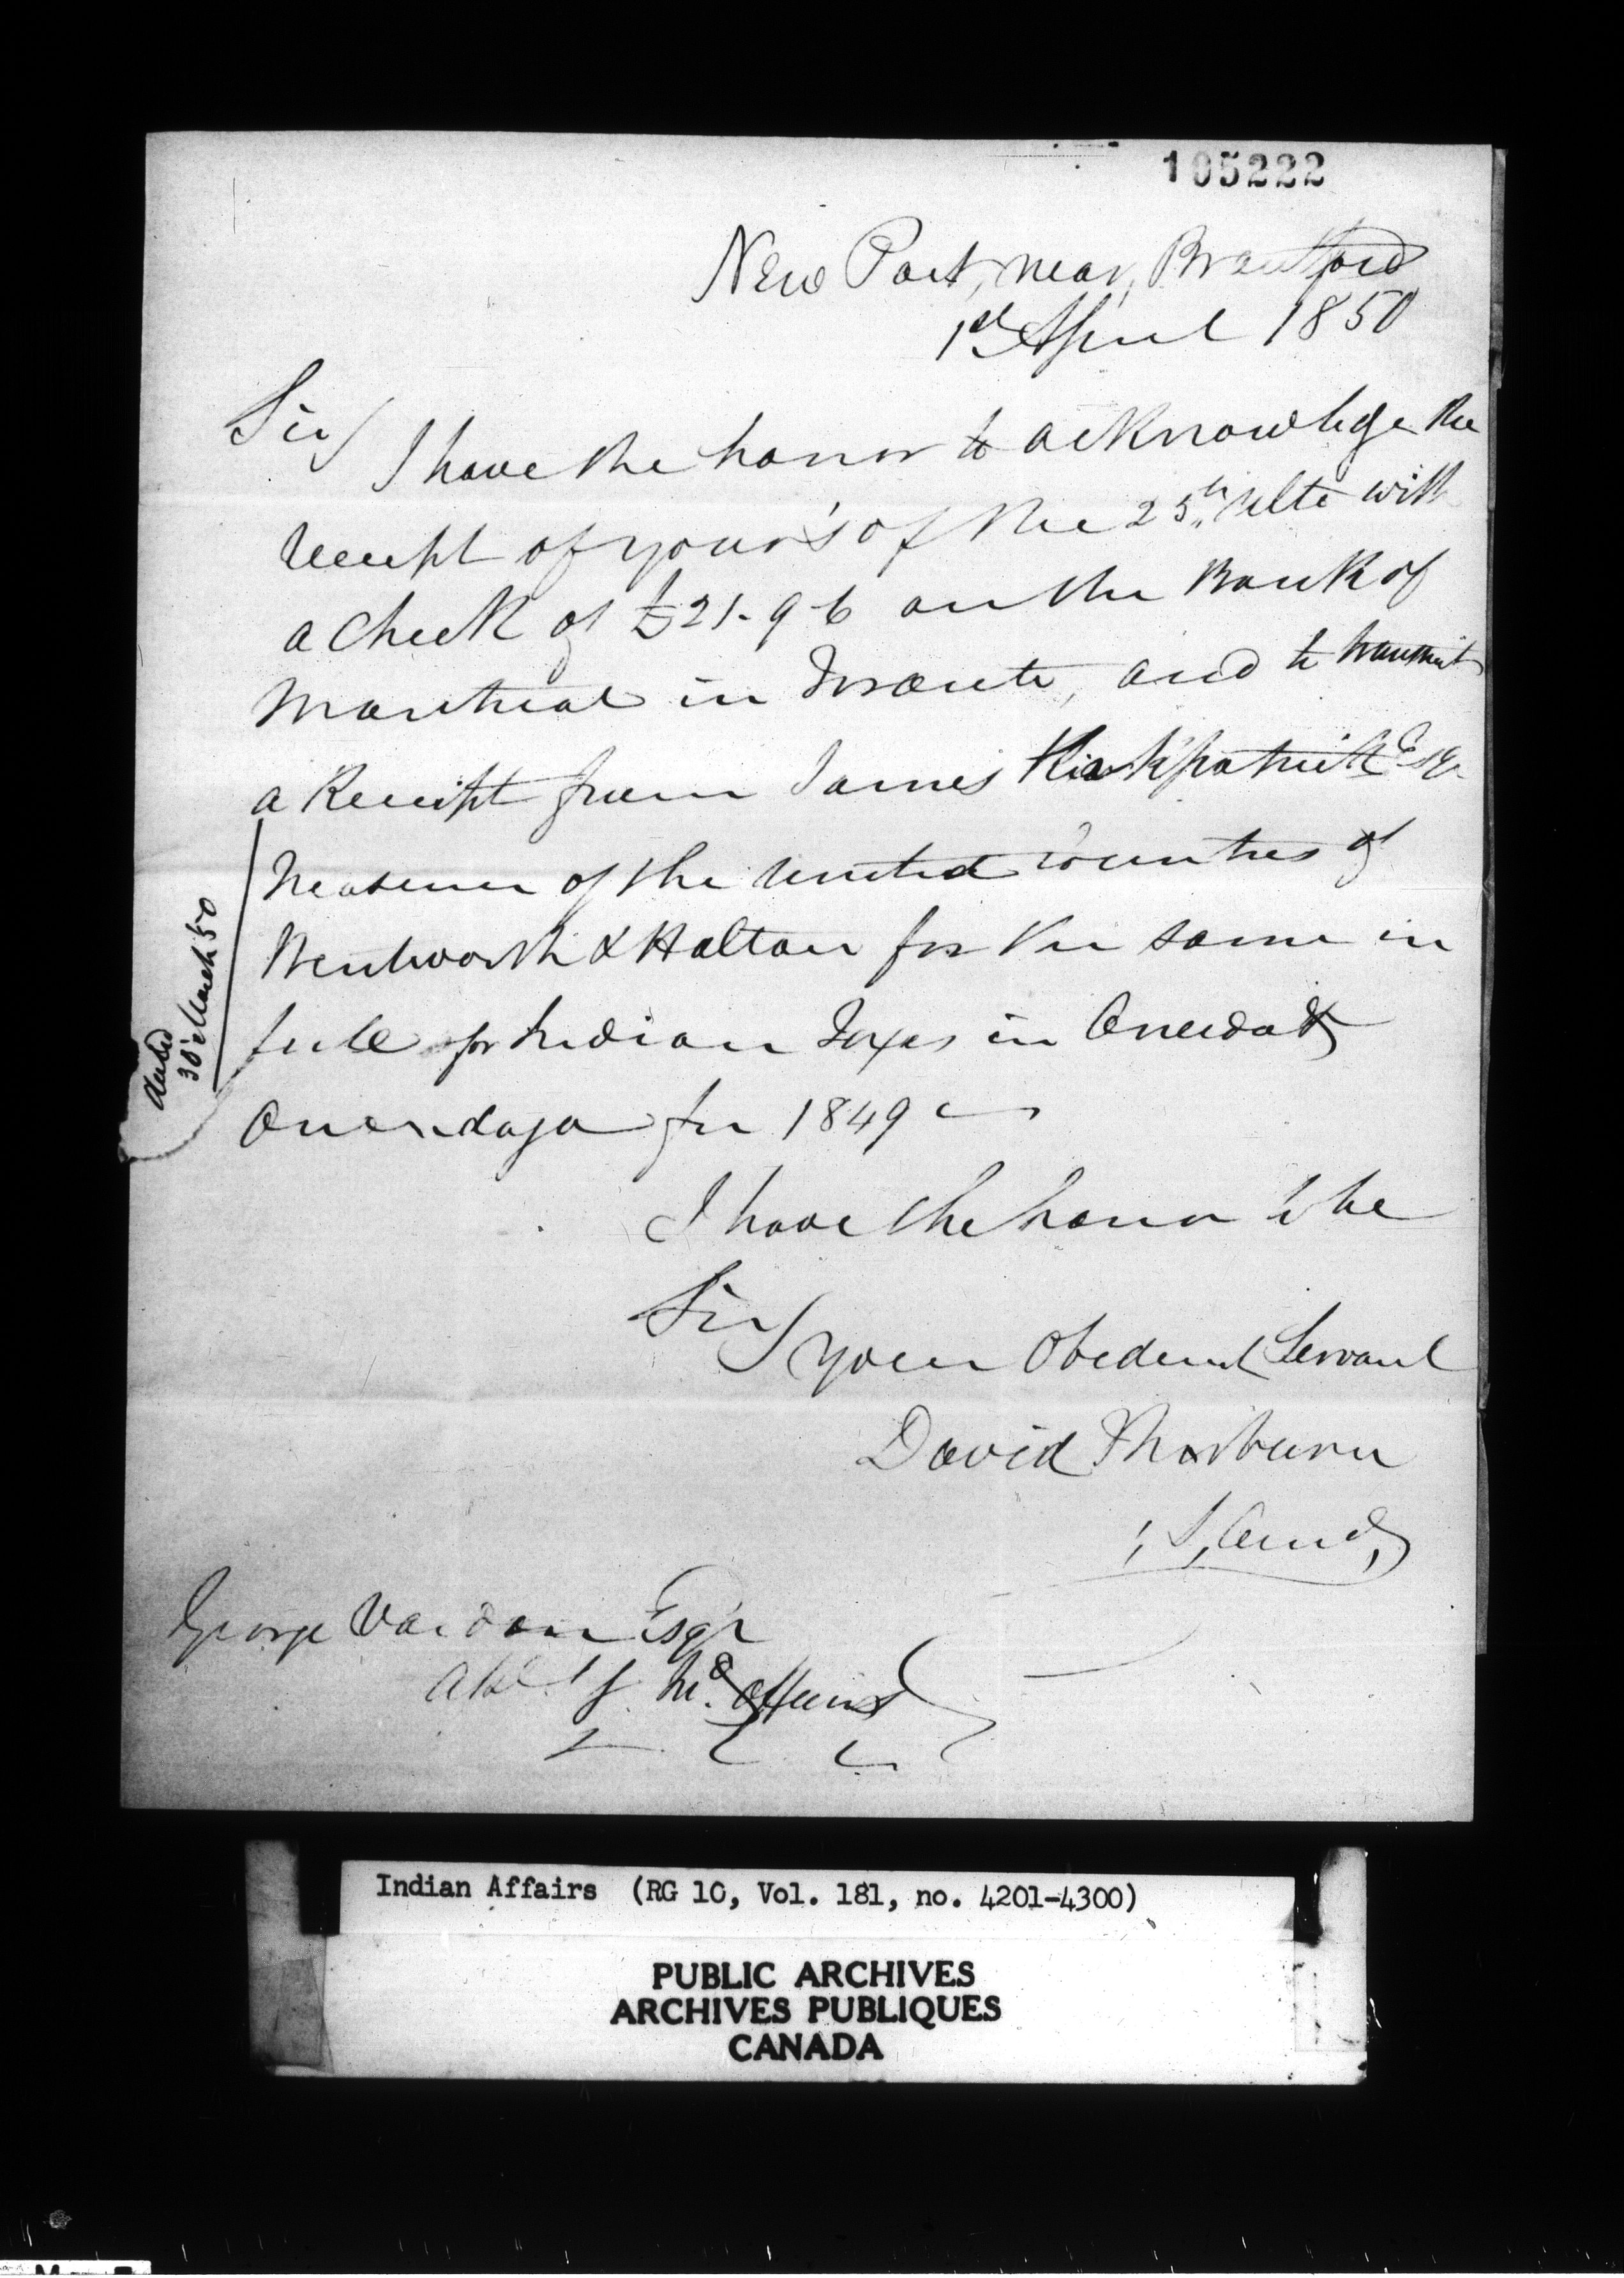 105222
New Port, near, Brantford
1st April 1850
Sir/
I have the honor to acknowledge the
receipt of your's of the 25th Ulto with
a Check of £21-9-6 on the Bank of
Montreal in Toronto, and to transmit
a Receipt from James Kirkpatrick Esqr
Treasurer of the United Counties of
Wentworth & Halton for the same in
full for Indian Taxes in Oneida &
Onondaga for 1849
dated
30th March 50
I have the honor to be
Sir/
your Obedient Servant
David Thorburn
George Vardon Esqr
Indian Affairs (RG 10, Vol. 181, no. 4201-4300)
PUBLIC ARCHIVES
ARCHIVES PUBLIQUES
CANADA